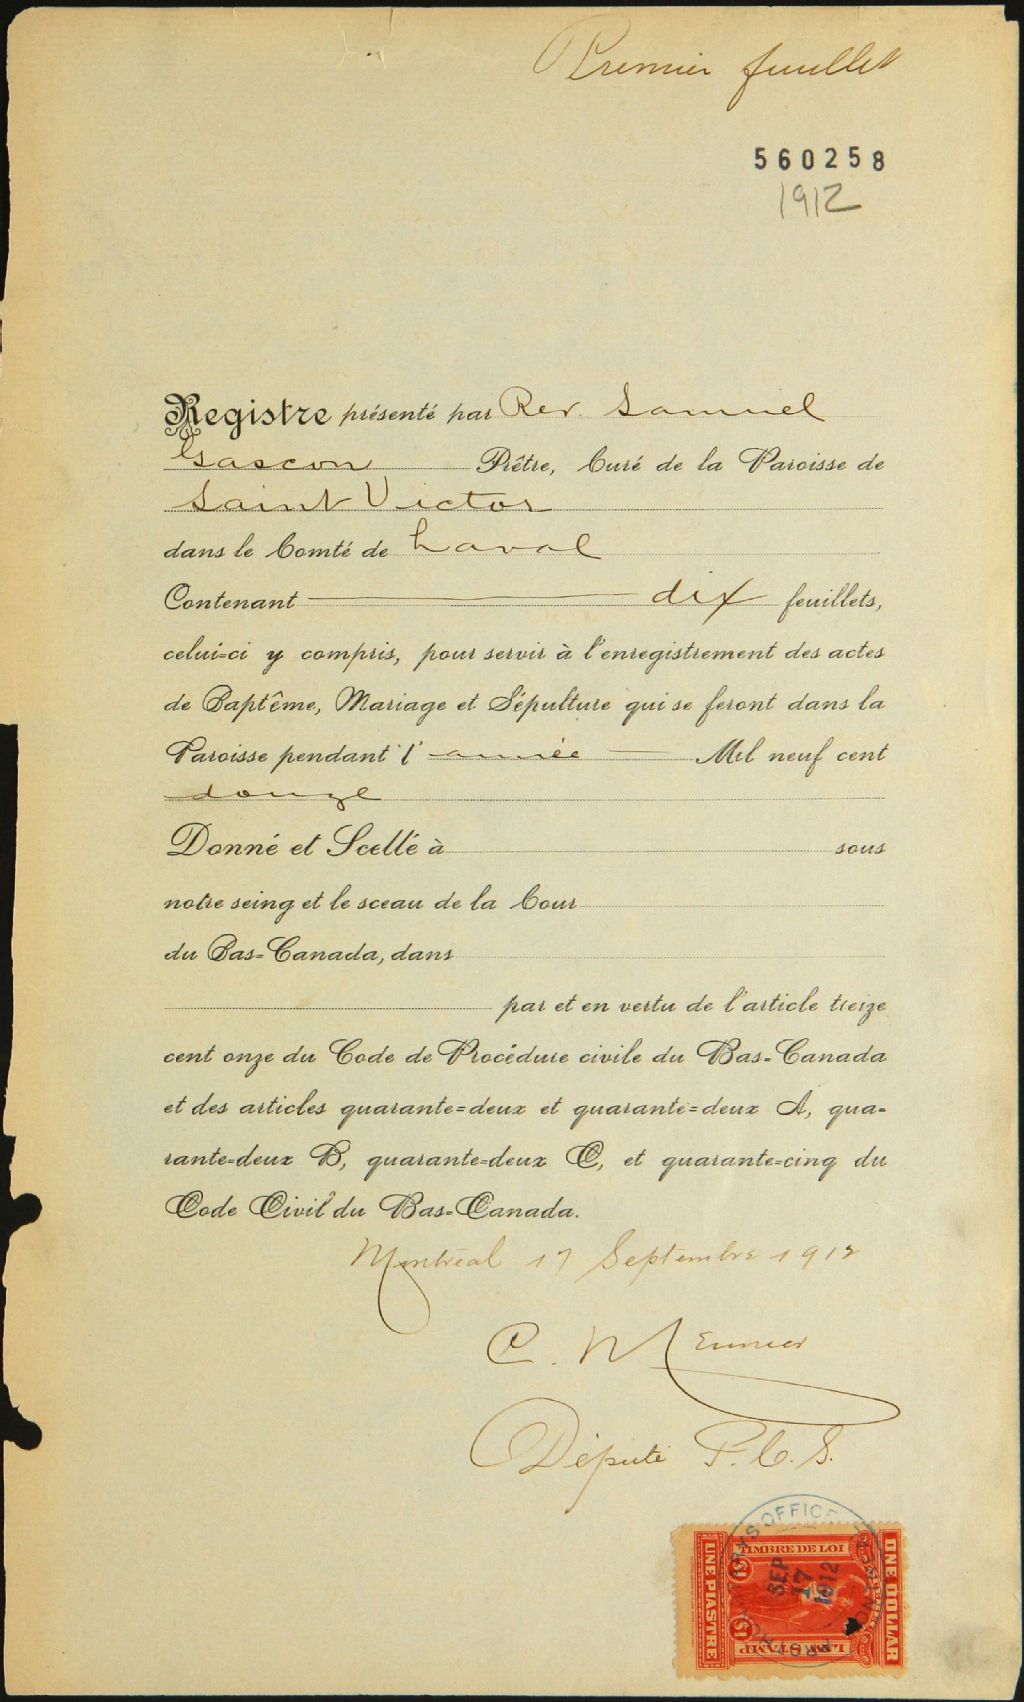 Premier feuillet
560258
1912
Registre présenté par Rev. Samuel
Gascon Prêtre, Curé de la Paroisse de
Saint Victor
dans le Comté de Laval
Contenant dix feuillets,
celui=ci y compris, pour servir à l'enregistrement des actes
de Baptême, Mariage et Sépulture qui se feront dans la
Paroisse pendant l'année Mil neuf cent
douze
Donné et Scellé à sous
notre seing et le sceau de la Cour
du Bas=Canada, dans
par et en vertu de l'article treize
cent onze du Code de Procédure civile du Bas=Canada
et des articles quarante=deux et quarante=deux A, qua=
rante=deux B, quarante=deux C, et quarante=cinq du
Code Civil du Bas=Canada.
Montréal 17 Septembre 1912
C. Meunier
Député P.C.S.
OFFICE
SEP
17
1912
TIMBRE DE LOI
LAW STAMP
UNE PIASTRE
ONE DOLLAR
$1
$1